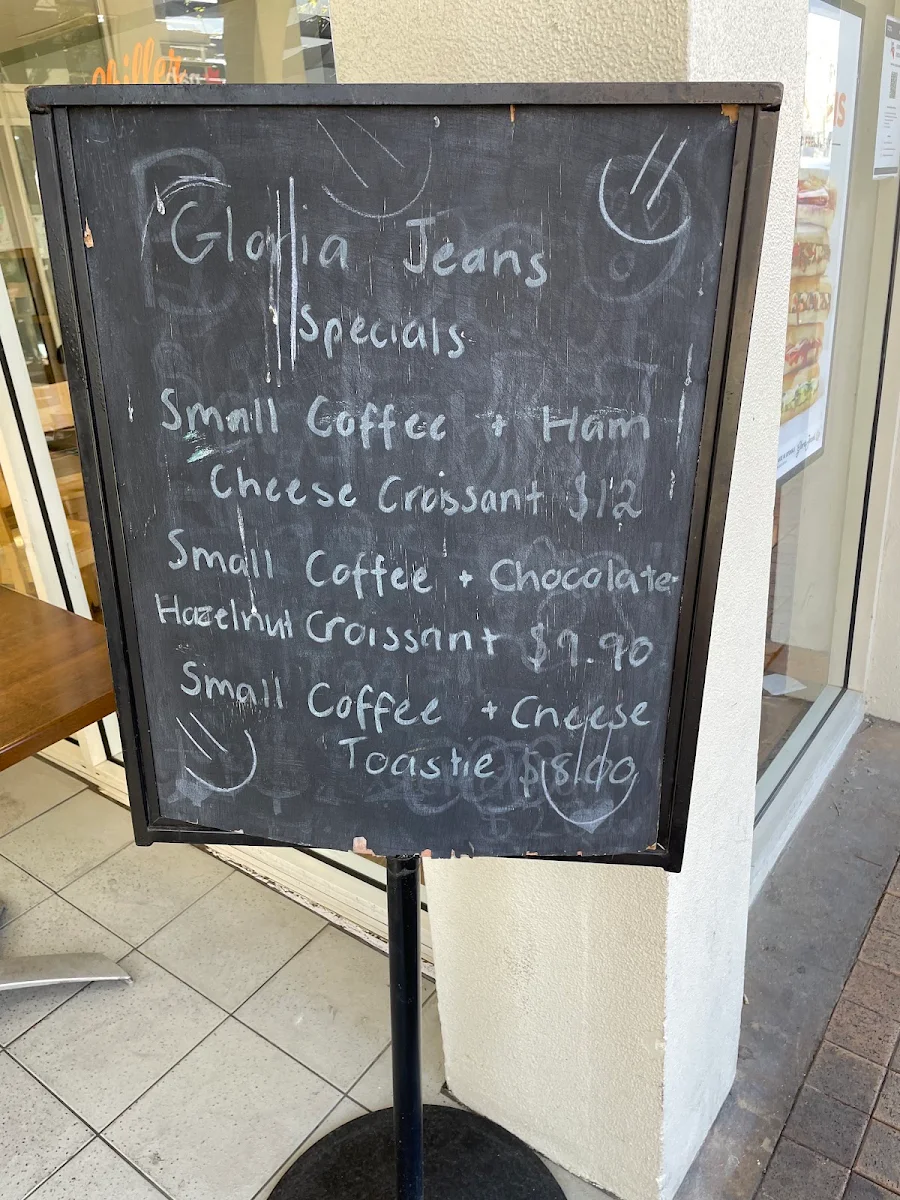 Chiller
Gloria Jeans
Specials
Small Coffee + Ham
Cheese Croissant $12
Small Coffee + Chocolate
Hazelnut Croissant $9.90
Small Coffee + Cheese
Toastie $8.00